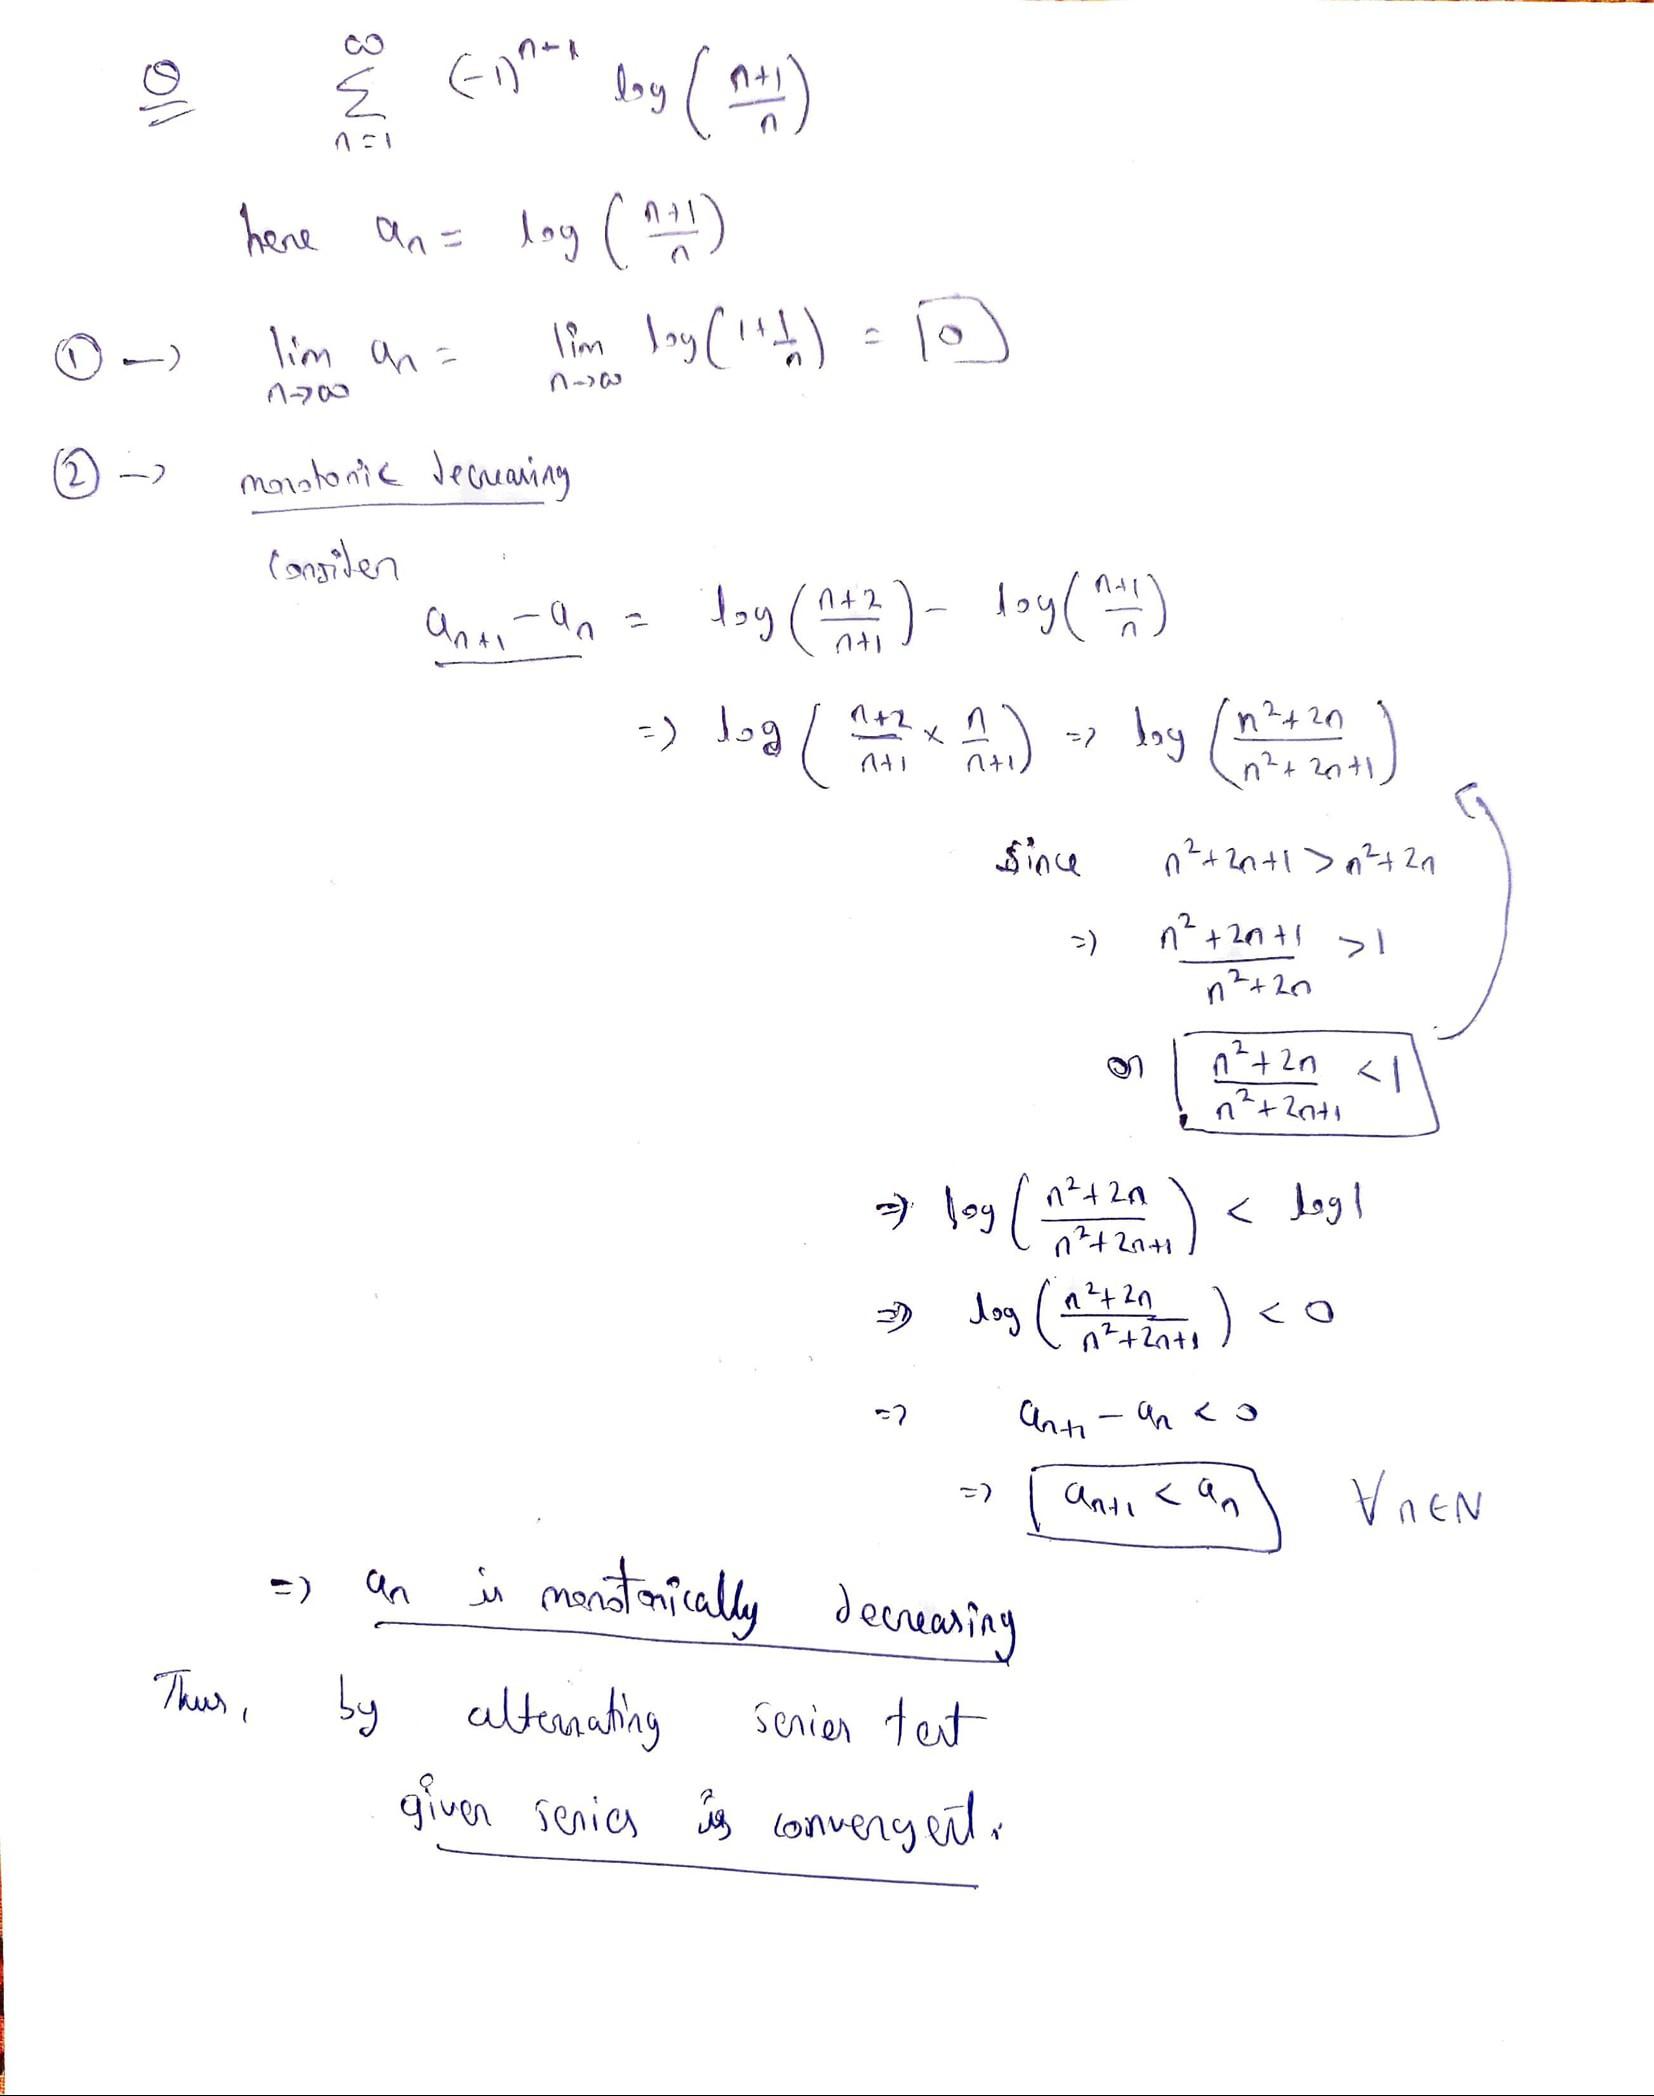 Q ∞ Σ n=1 (-1)^{n+1} log ( (n+1)/n )
here a_n = log ( (n+1)/n )
① → lim n→∞ a_n = lim n→∞ log(1+1/n) = 0
② → monotonic decreasing
Consider
a_{n+1} - a_n = log ( (n+2)/(n+1) ) - log ( (n+1)/n )
=> log ( (n+2)/(n+1) × n/(n+1) ) => log ( (n²+2n)/(n²+2n+1) )
Since n²+2n+1 > n²+2n
=> (n²+2n+1)/(n²+2n) > 1
or (n²+2n)/(n²+2n+1) < 1
=> log ( (n²+2n)/(n²+2n+1) ) < log 1
=> log ( (n²+2n)/(n²+2n+1) ) < 0
=> a_{n+1} - a_n < 0
=> a_{n+1} < a_n ∀ n ∈ N
=> a_n is monotonically decreasing
Thus, by alternating series test
given series is convergent.